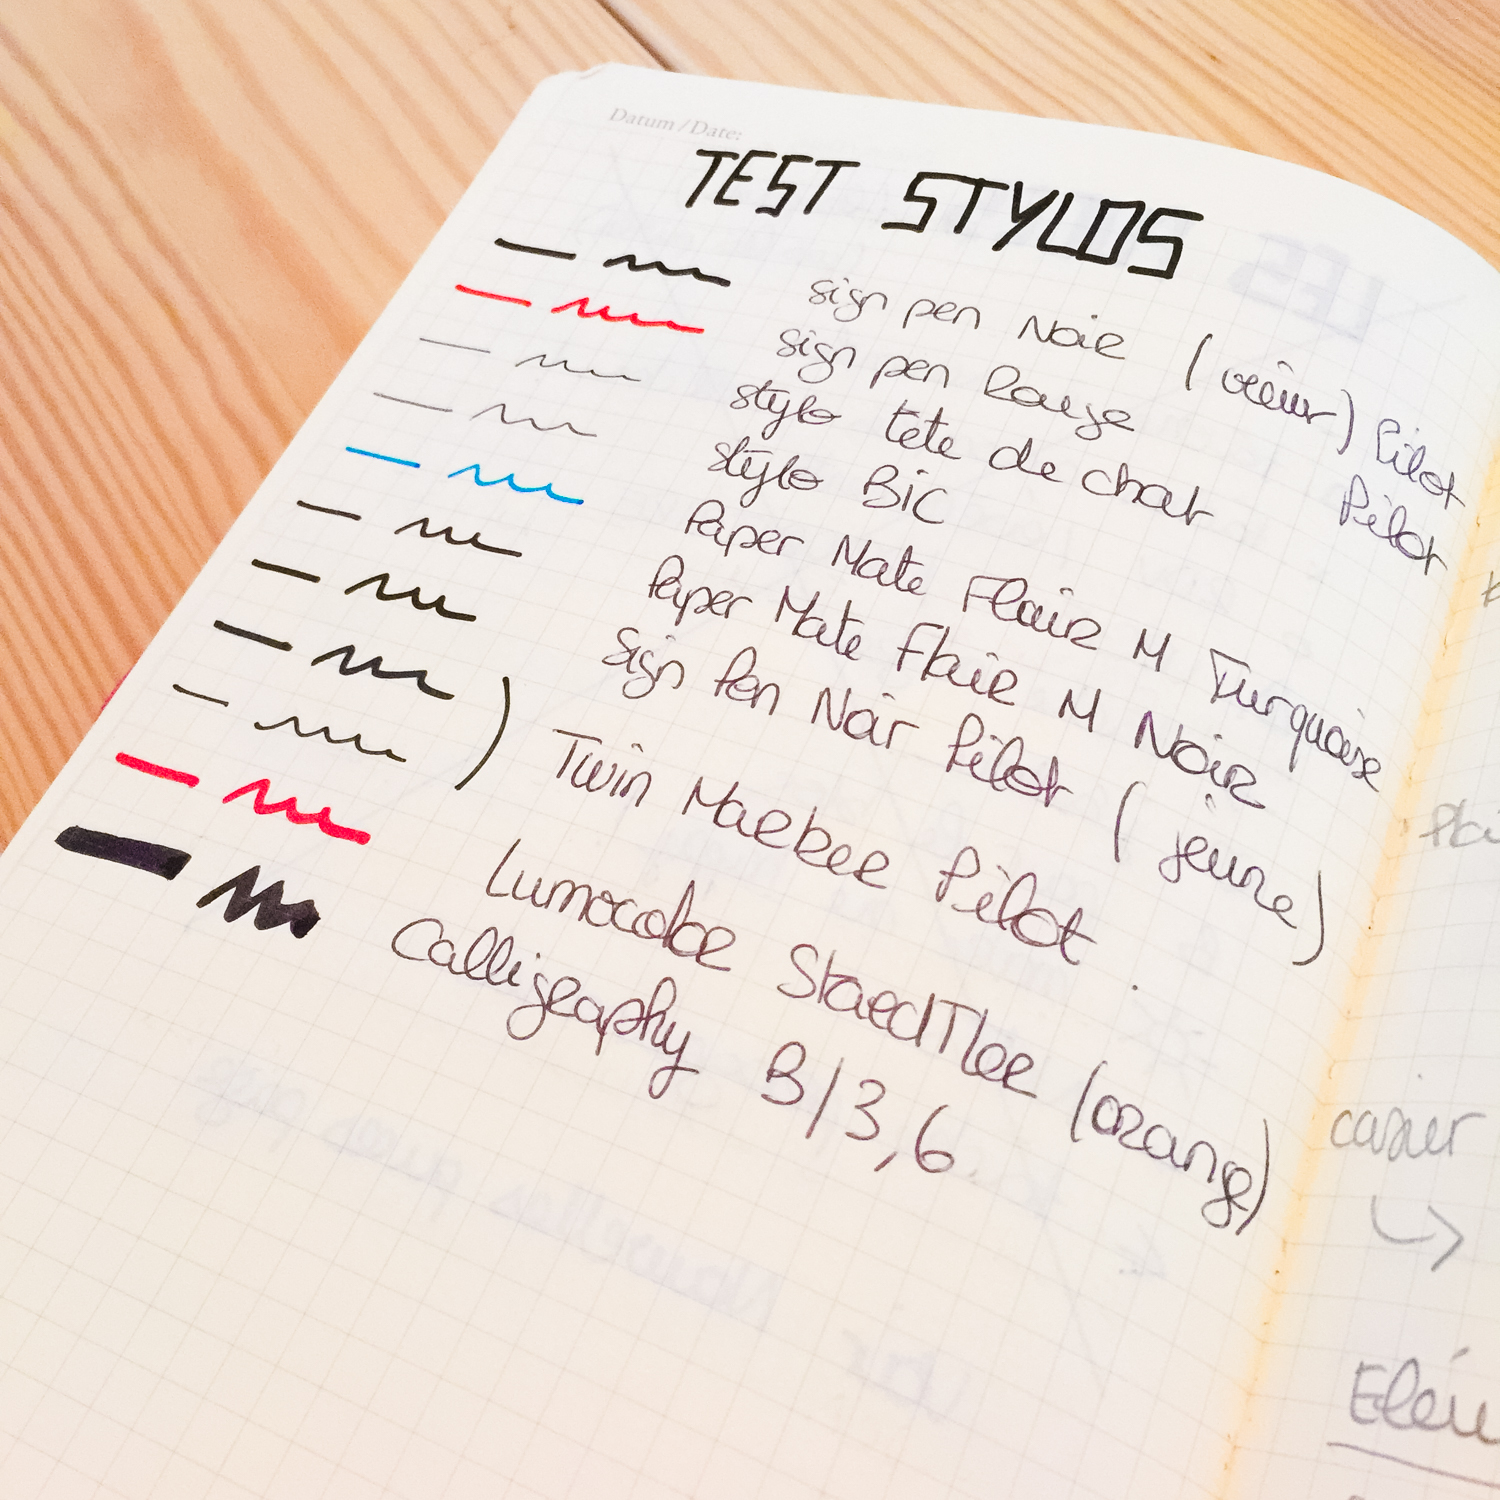 Datum / Date:
TEST STYLOS
sign pen Noir (vieux) Pilot
sign pen Rouge Pilot
stylo tete de chat
stylo BiC
Paper Mate Flair M Turquoise
Paper Mate Flair M Noir
Sign Pen Noir Pilot (jeune)
Twin Marker Pilot
Lumocolor Staedtler (orange)
Calligraphy B/3,6